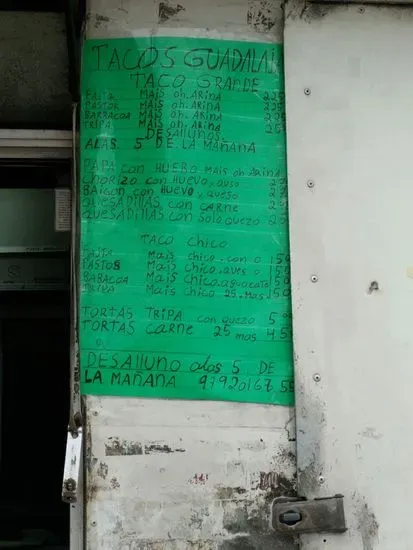 TACOS GUADALAJ
TACO GRANDE
FAJITA MAIS oh. ARINA 225
PASTOR MAIS oh. ARINA 225
BARBACOA MAIS oh. ARINA 225
TRIPA MAIS oh. ARINA 25
DESALLUNOS
ALAS 5 DE LA MAÑANA
PAPA con HUEBO MAIS oh ARINA
CHORIZO con HUEVO, QUSO 2
BAICON con HUEVO, QUESO 2
QUESADILLAS con CARNE 2
QUESADILLAS con Solo QUEZO 25
TACO CHICO
Mais chico. con Q 150
PASTOS Mais chico, ques o 150
BABACOA Mais chico, aguacate 150
TRIPA Mais chico 25. Mas
TORTAS TRIPA con quezo 5
TORTAS CARNE 25 mas 45
DESALLUNO alas 5 DE
LA MAÑANA 97920167 55